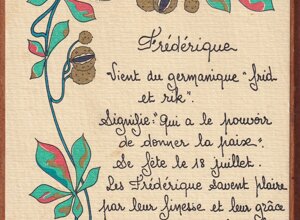 Frédérique
Vient du germanique "frid
et rik".
Signifie: "Qui a le pouvoir
de donner la paix".
Se fête le 18 juillet.
Les Frédérique savent plaire
par leur finesse et leur grâce